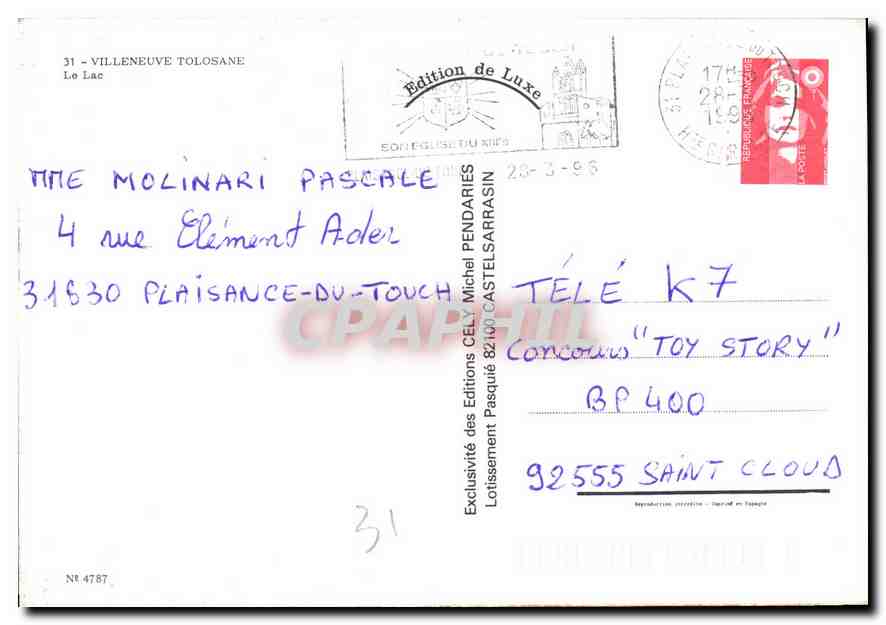 31 - VILLENEUVE TOLOSANE
Le Lac
Edition de Luxe
SON EGLISE DU XIIIe
28-3-96
17H
28-
199
REPUBLIQUE FRANÇAISE
LA POSTE
MME MOLINARI PASCALE
4 rue Clément Ader
31830 PLAISANCE-DU-TOUCH
Exclusivité des Editions CELY Michel PENDARIES
Lotissement Pasquié 82100 CASTELSARRASIN
TÉLÉ K7
Concours "TOY STORY"
BP 400
92555 SAINT CLOUD
Reproduction interdite - Imprimé en Espagne
CPAPHIL
31
Nº 4787